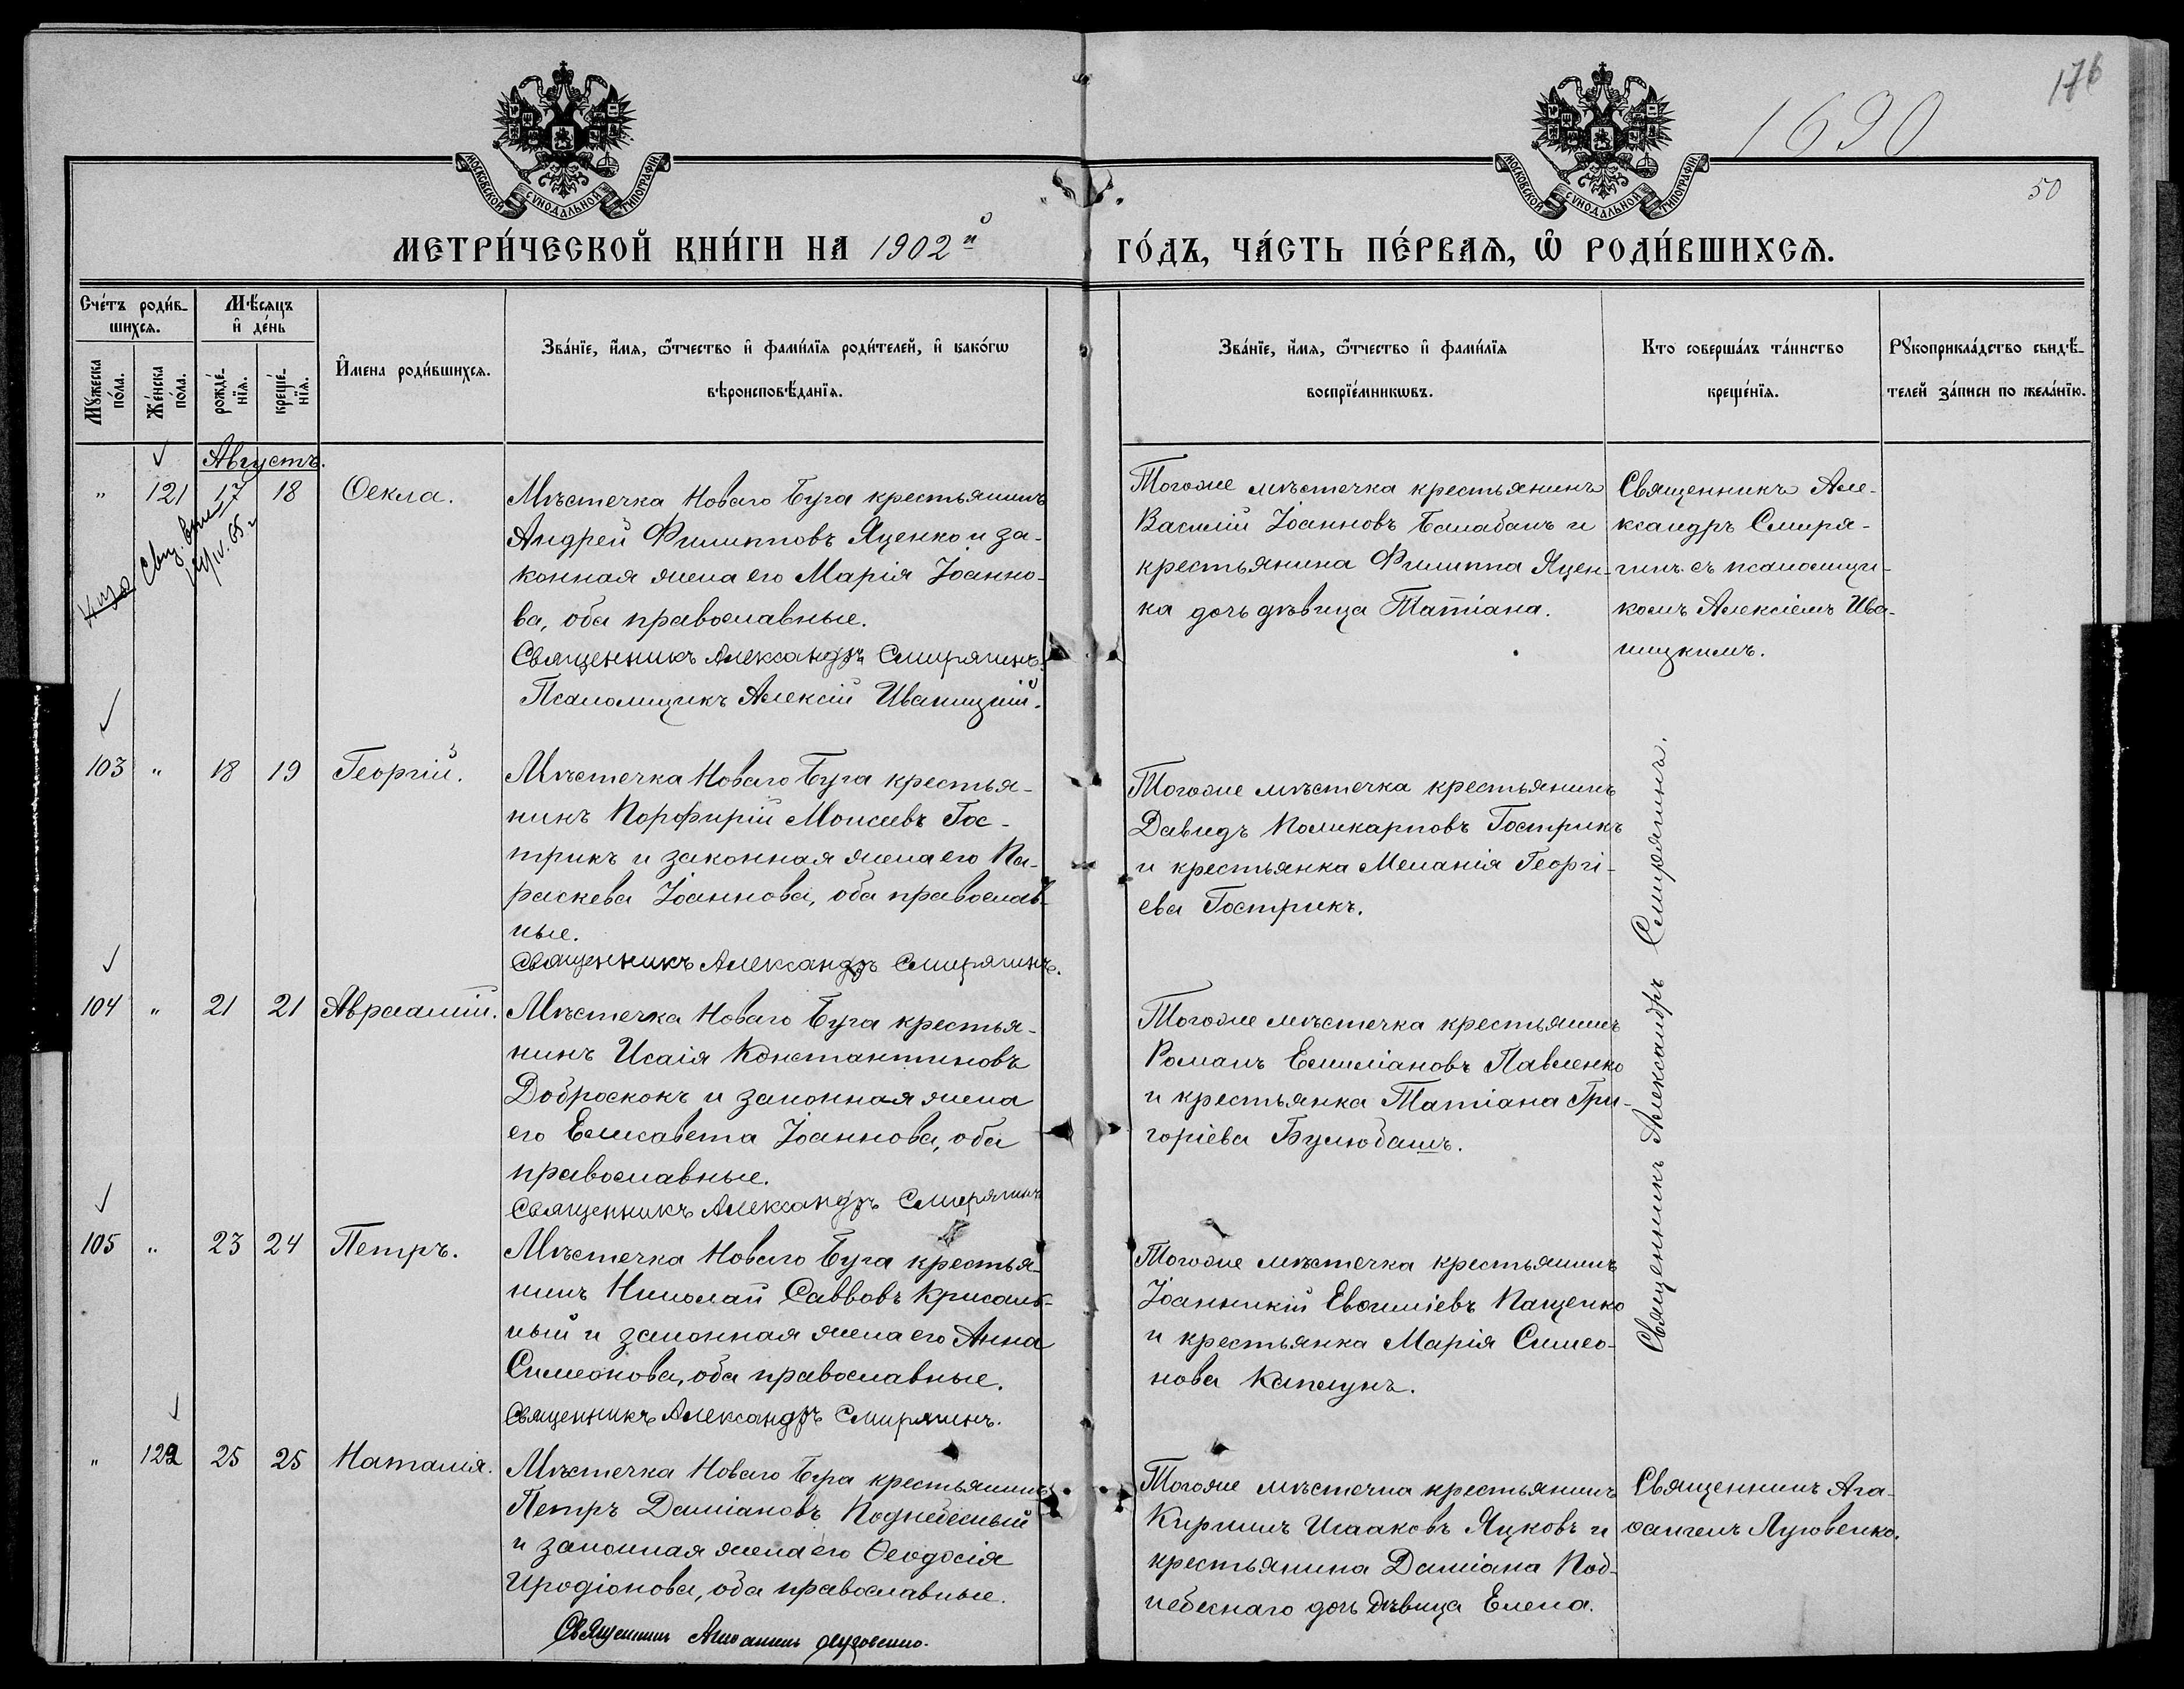 176
1690
50
МОСКОВСКОЙ СѴНОДАЛЬНОЙ ТИПОГРАФІИ
МОСКОВСКОЙ СѴНОДАЛЬНОЙ ТИПОГРАФІИ
МЕТРИ́ЧЕСКОЙ КНИ́ГИ НА 1902й ГО́ДЪ, ЧА́СТЬ ПЕ́РВАѦ, Ѡ РОДИ́ВШИХСѦ.
Сче́тъ роди́в-
шихсѧ.
Мꙋ́жеска по́ла.
Же́нска по́ла.
Мѣ́сѧцъ
и҆ де́нь
рожде́-
нїѧ.
креще́-
нїѧ.
И҆мена роди́вшихсѧ.
Зва́нїе, и҆́мѧ, ѻ҆́тчество и҆ фами́лїѧ роди́телей, и҆ како́гѡ
вѣроисповѣ́данїѧ.
Зва́нїе, и҆́мѧ, ѻ҆́тчество и҆ фами́лїѧ
воспрїе́мникѡвъ.
Кто соверша́лъ та́инство
креще́нїѧ.
Рꙋкоприкла́дство свидѣ́-
телей за́писи по жела́нїю.
Августъ.
" 121 17 18 Ѳекла.
Мѣстечка Новаго Буга крестьянинъ
Андрей Филипповъ Яценко и за-
конная жена его Марія Іоанно-
ва, оба православные.
Священникъ Александръ Смирягинъ.
Псаломщикъ Алексій Иваницкій.
Тогоже мѣстечка крестьянинъ
Василій Іоанновъ Балабанъ и
крестьянина Филиппа Яцен-
ка дочь дѣвица Татіана.
Священникъ Але-
ксандръ Смиря-
гинъ съ псаломщи-
комъ Алексіемъ Ива-
ницкимъ.
103 " 18 19 Георгій.
Мѣстечка Новаго Буга крестья-
нинъ Порфирій Моисеевъ Гос-
трикъ и законная жена его Па-
раскева Іоаннова, оба православ-
ные.
Священникъ Александръ Смирягинъ.
Тогоже мѣстечка крестьянинъ
Давидъ Поликарповъ Гострикъ
и крестьянка Меланія Георгі-
ева Гострикъ.
Священникъ Александръ Смирягинъ.
104 " 21 21 Авраамій.
Мѣстечка Новаго Буга крестья-
нинъ Исаія Константиновъ
Доброскокъ и законная жена
его Елисавета Іоаннова, оба
православные.
Священникъ Александръ Смирягинъ
Тогоже мѣстечка крестьянинъ
Романъ Емиліановъ Павленко
и крестьянка Татіана Гри-
горіева Булюбашъ.
105 " 23 24 Петръ.
Мѣстечка Новаго Буга крестья-
нинъ Николай Саввовъ
ный и законная жена его Анна
Симеонова, оба православные.
Священникъ Александръ Смирягинъ.
Тогоже мѣстечка крестьянинъ
Іоанникій Евѳиміевъ Пащенко
и крестьянка Марія Симео-
нова Каплунъ.
" 122 25 25 Наталія.
Мѣстечка Новаго Буга крестьянинъ
Петръ Даміановъ Поднебесный
и законная жена его Ѳеодосія
Иродіонова, оба православные.
Священникъ Агаѳангелъ Луговенко.
Тогоже мѣстечка крестьянинъ
Кириллъ Исааковъ Яцковъ и
крестьянина Даміана Под-
небеснаго дочь дѣвица Елена.
Священникъ Ага-
ѳангелъ Луговенко.